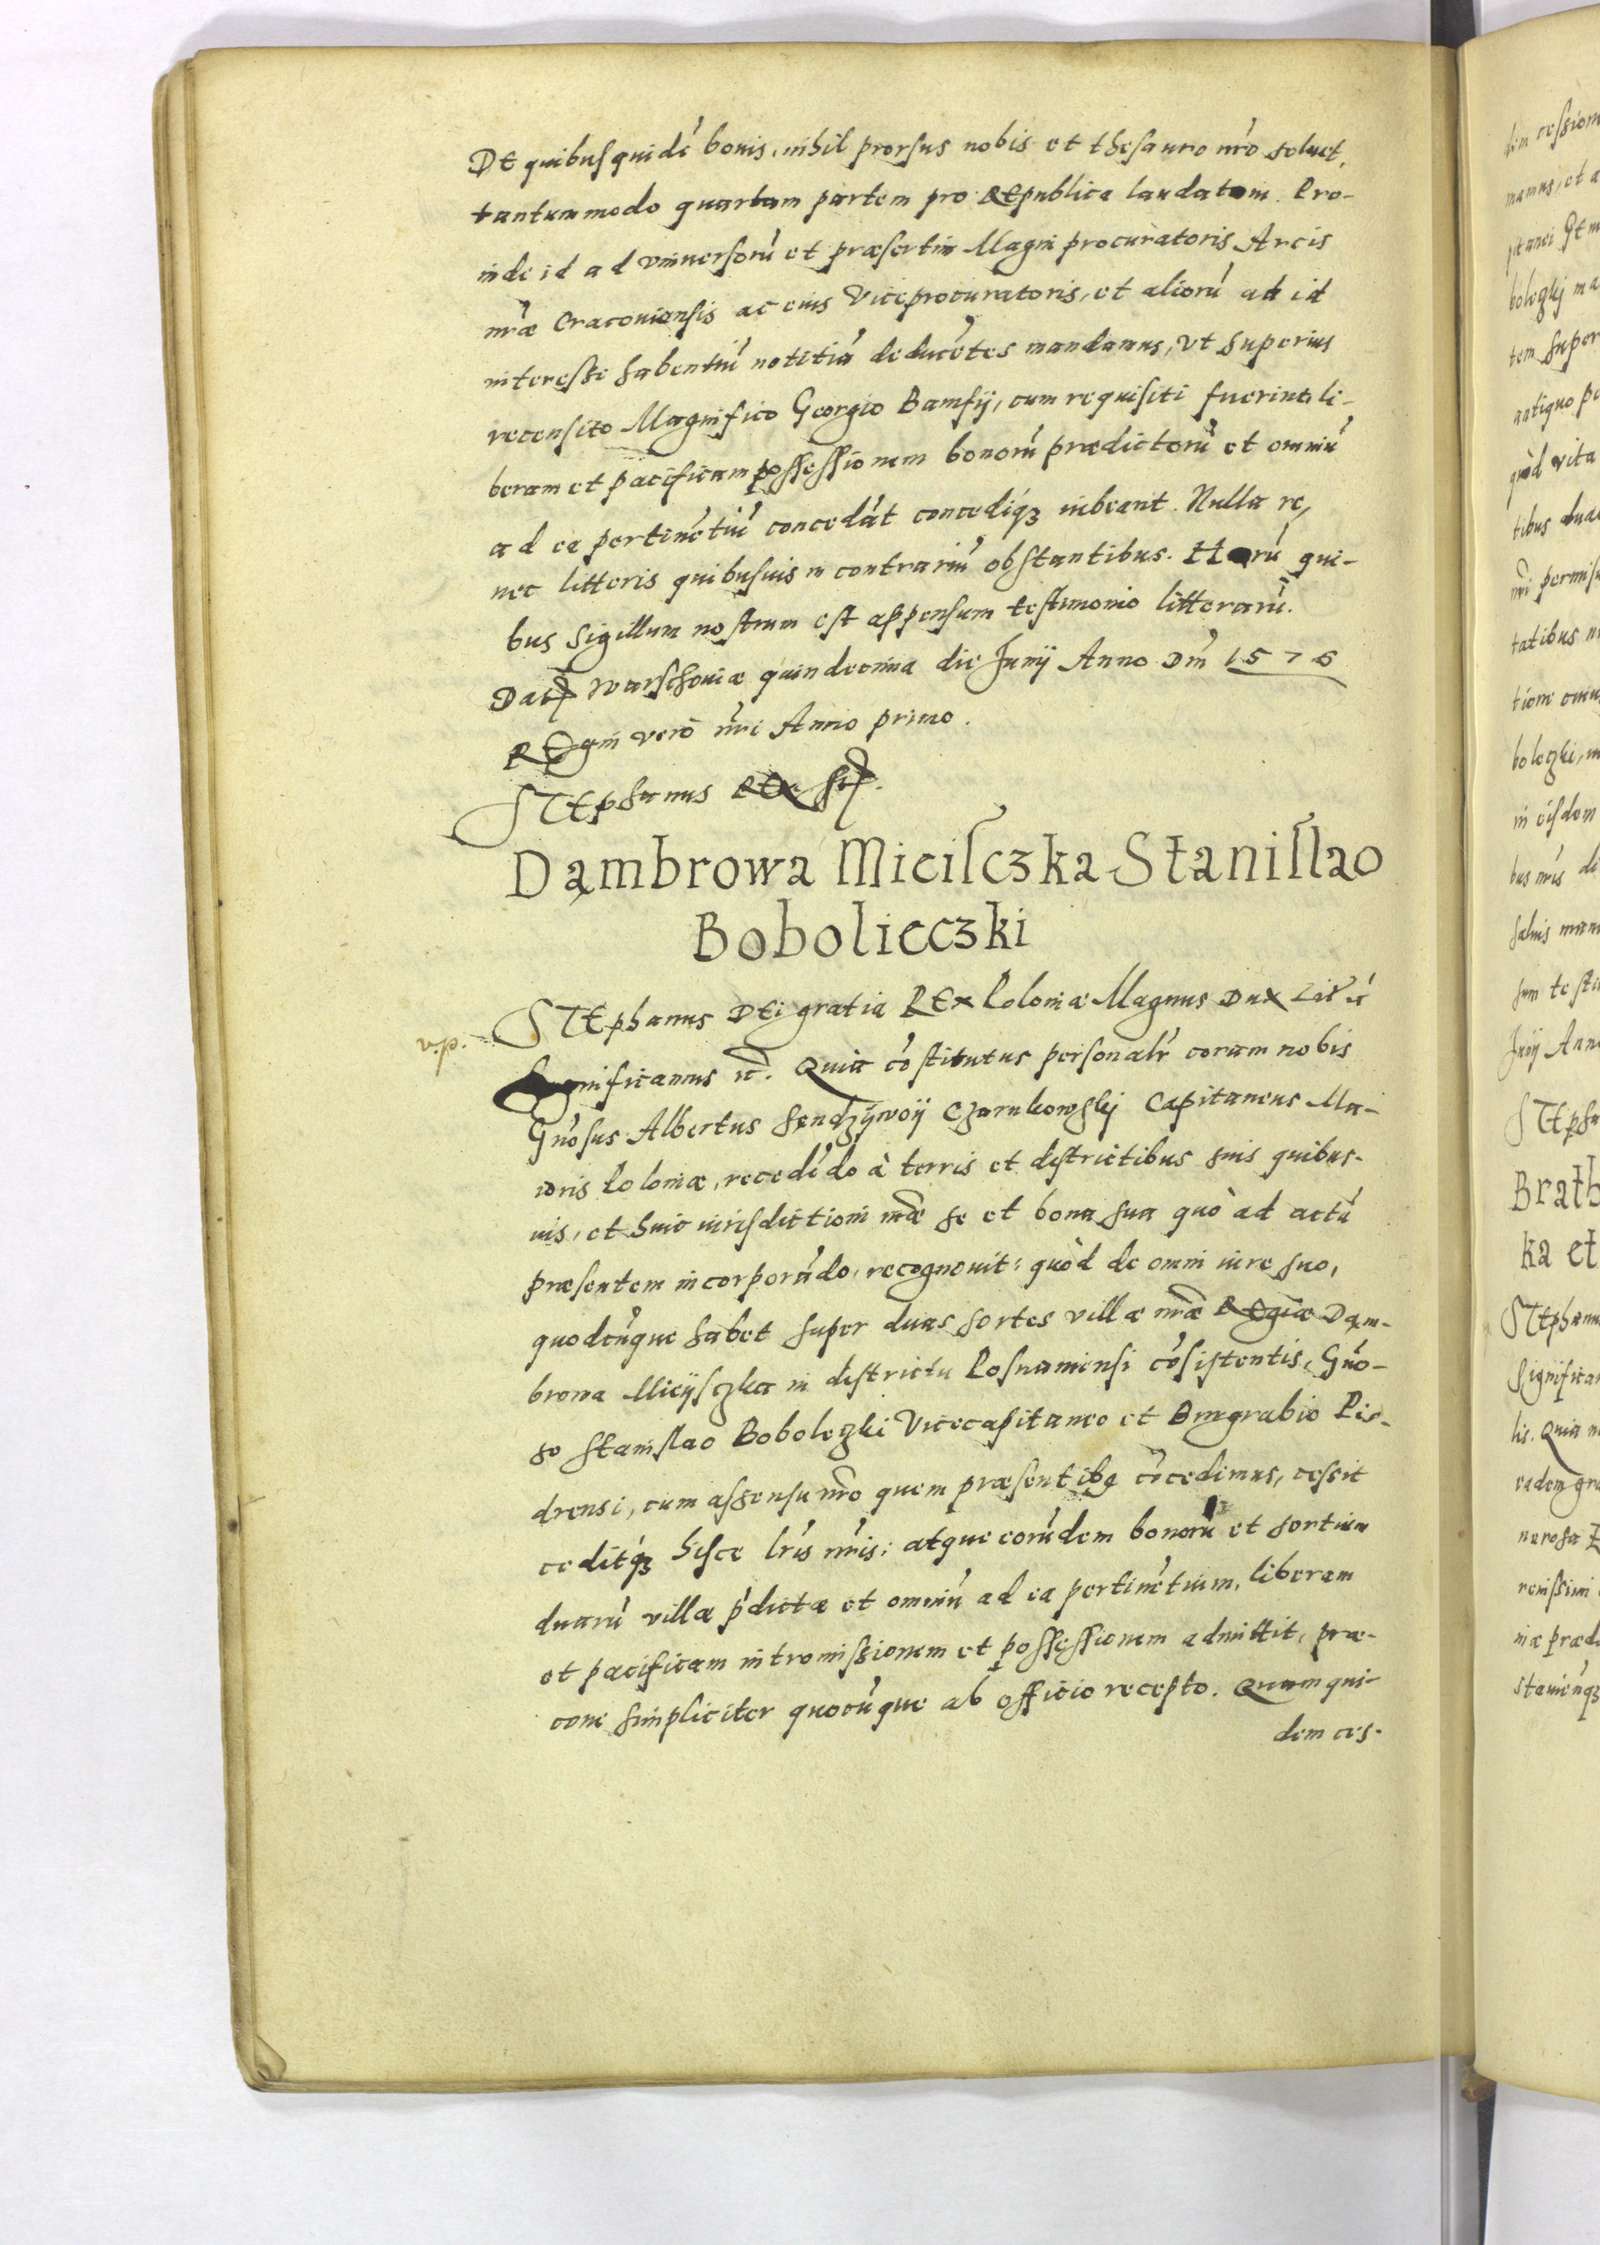 De quibus quidẽ bonis, nihil prorsus nobis et thesauro nr̃o soluet,
tantummodo quartam partem pro Republica laudatam. Pro-
inde id ad vniuersorũ et præsertim Magni procuratoris Arcis
nr̃æ Cracouiensis ac eius Viceprocuratoris, et aliorũ ad id
interesse habentiũ notitiã deducẽtes mandamus, vt superius
recensito Magnifico Georgio Bamfij, cum requisiti fuerint, li-
beram et pacificam possessionem bonorũ prædictorũ et omniũ
ad ea pertinẽtiũ concedãt concediqʒ iubeant. Nulla re,
nec litteris quibusuis in contrariũ obstantibus. Harũ qui-
bus Sigillum nostrum est appensum testimonio litterarũ.
Dat Warschouiæ quindecima die Junij Anno Dm̃ 1576
Regni verò nr̃i Anno primo.
Stephanus Rex sst.
Dąmbrowa Micisczka Stanislao
Bobolieczki
v.p. Stephanus Dei gratia Rex Poloniæ Magnus Dux Lit' ć
Significamus ꝛc̃. Quia cõstitutus personalr̃ coram nobis
Gñosus Albertus Sendzÿwoÿ Czarnkowskj Capitaneus Ma-
ioris Poloniæ, recedẽdo à terris et districtibus suis quibus-
uis, et huic iurisdictioni nr̃æ se et bona sua quò ad actũ
præsentem incorporãdo, recognouit: quòd de omni iure suo,
quodcũque habet super duas sortes villæ nr̃æ Regiæ Dąm-
browa Miciÿsczka in districtu Posnaniensi cõsistentis, Gño-
so Stanislao Boboleczki Vicecapitaneo et Burgrabio Pis-
drensi, cum assensu nr̃o quem præsentibꝫ cõcedimus, cessit
ceditqʒ hisce lr̃is nr̃is: atque eorũdem bonorũ et sortium
duarũ villæ p̃dictæ et omniũ ad ea pertinẽtium, liberam
et pacificam intromissionem et possessionem admittit, præ-
cone simpliciter quocũque ab officio recepto. Quam qui-
dem ces-